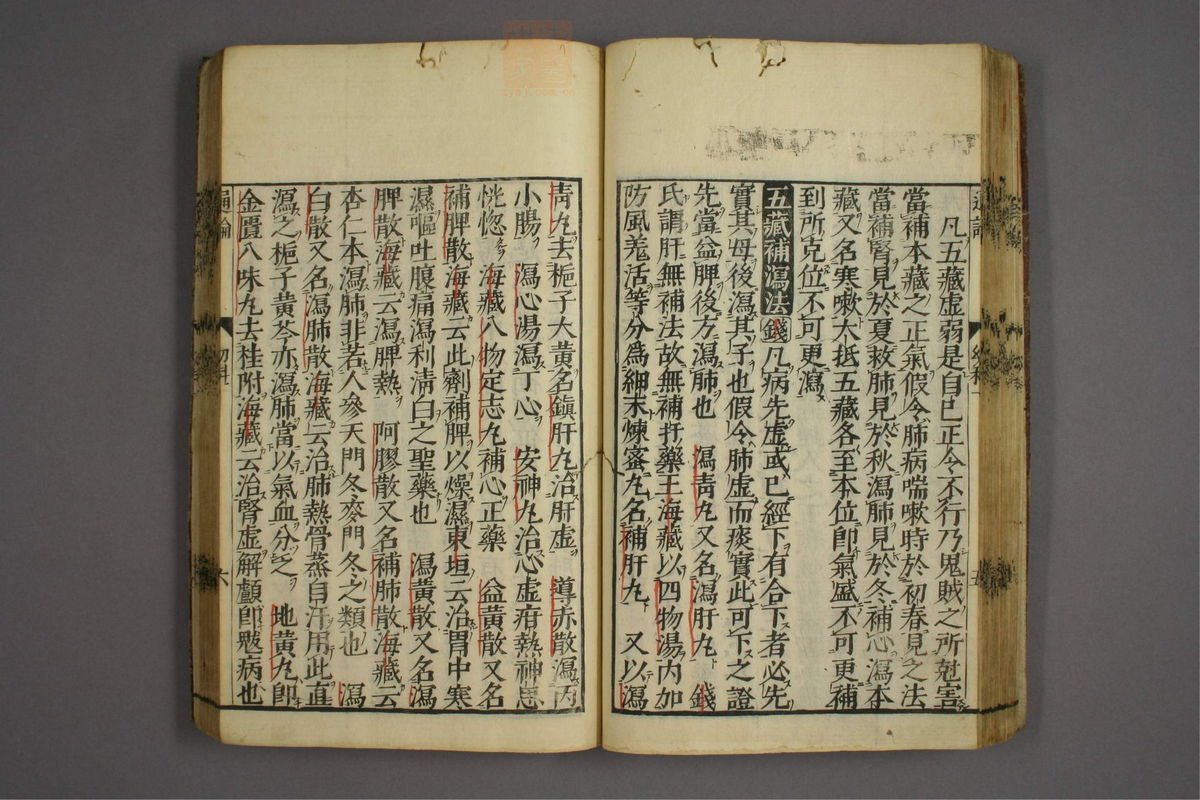 凡五藏虛弱是自已正令不行乃鬼賊之所尅害
當補本藏之正氣假令肺病喘嗽時於初春見之法
當補腎見於夏救肺見於秋瀉肺見於冬補心瀉本
藏又名寒嗽大抵五藏各至本位卽氣盛不可更補
到所克位不可更瀉
五藏補瀉法 錢凡病先虛或已經下有合下者必先
實其母後瀉其子也假令肺虛而痰實此可下之證
先當益脾後方瀉肺也 瀉靑丸又名瀉肝丸 錢
氏謂肝無補法故無補肝藥王海藏以四物湯內加
防風羗活等分爲細末煉蜜丸名補肝丸 又以瀉
靑丸去梔子大黃名鎭肝丸治肝虛 導赤散瀉丙
小腸 瀉心湯瀉丁心 安神丸治心虛疳熱神思
恍惚 海藏八物定志丸補心正藥 益黃散又名
補脾散海藏云此劑補脾以燥濕東垣云治胃中寒
濕嘔吐腹痛瀉利淸白之聖藥也 瀉黃散又名瀉
脾散海藏云瀉脾熱 阿膠散又名補肺散海藏云
杏仁本瀉肺非若人參天門冬麥門冬之類也 瀉
白散又名瀉肺散海藏云治肺熱骨蒸自汗用此直
瀉之梔子黃芩亦瀉肺當以氣血分之 地黃丸卽
金匱八味丸去桂附海藏云治腎虛解顱卽魃病也
六